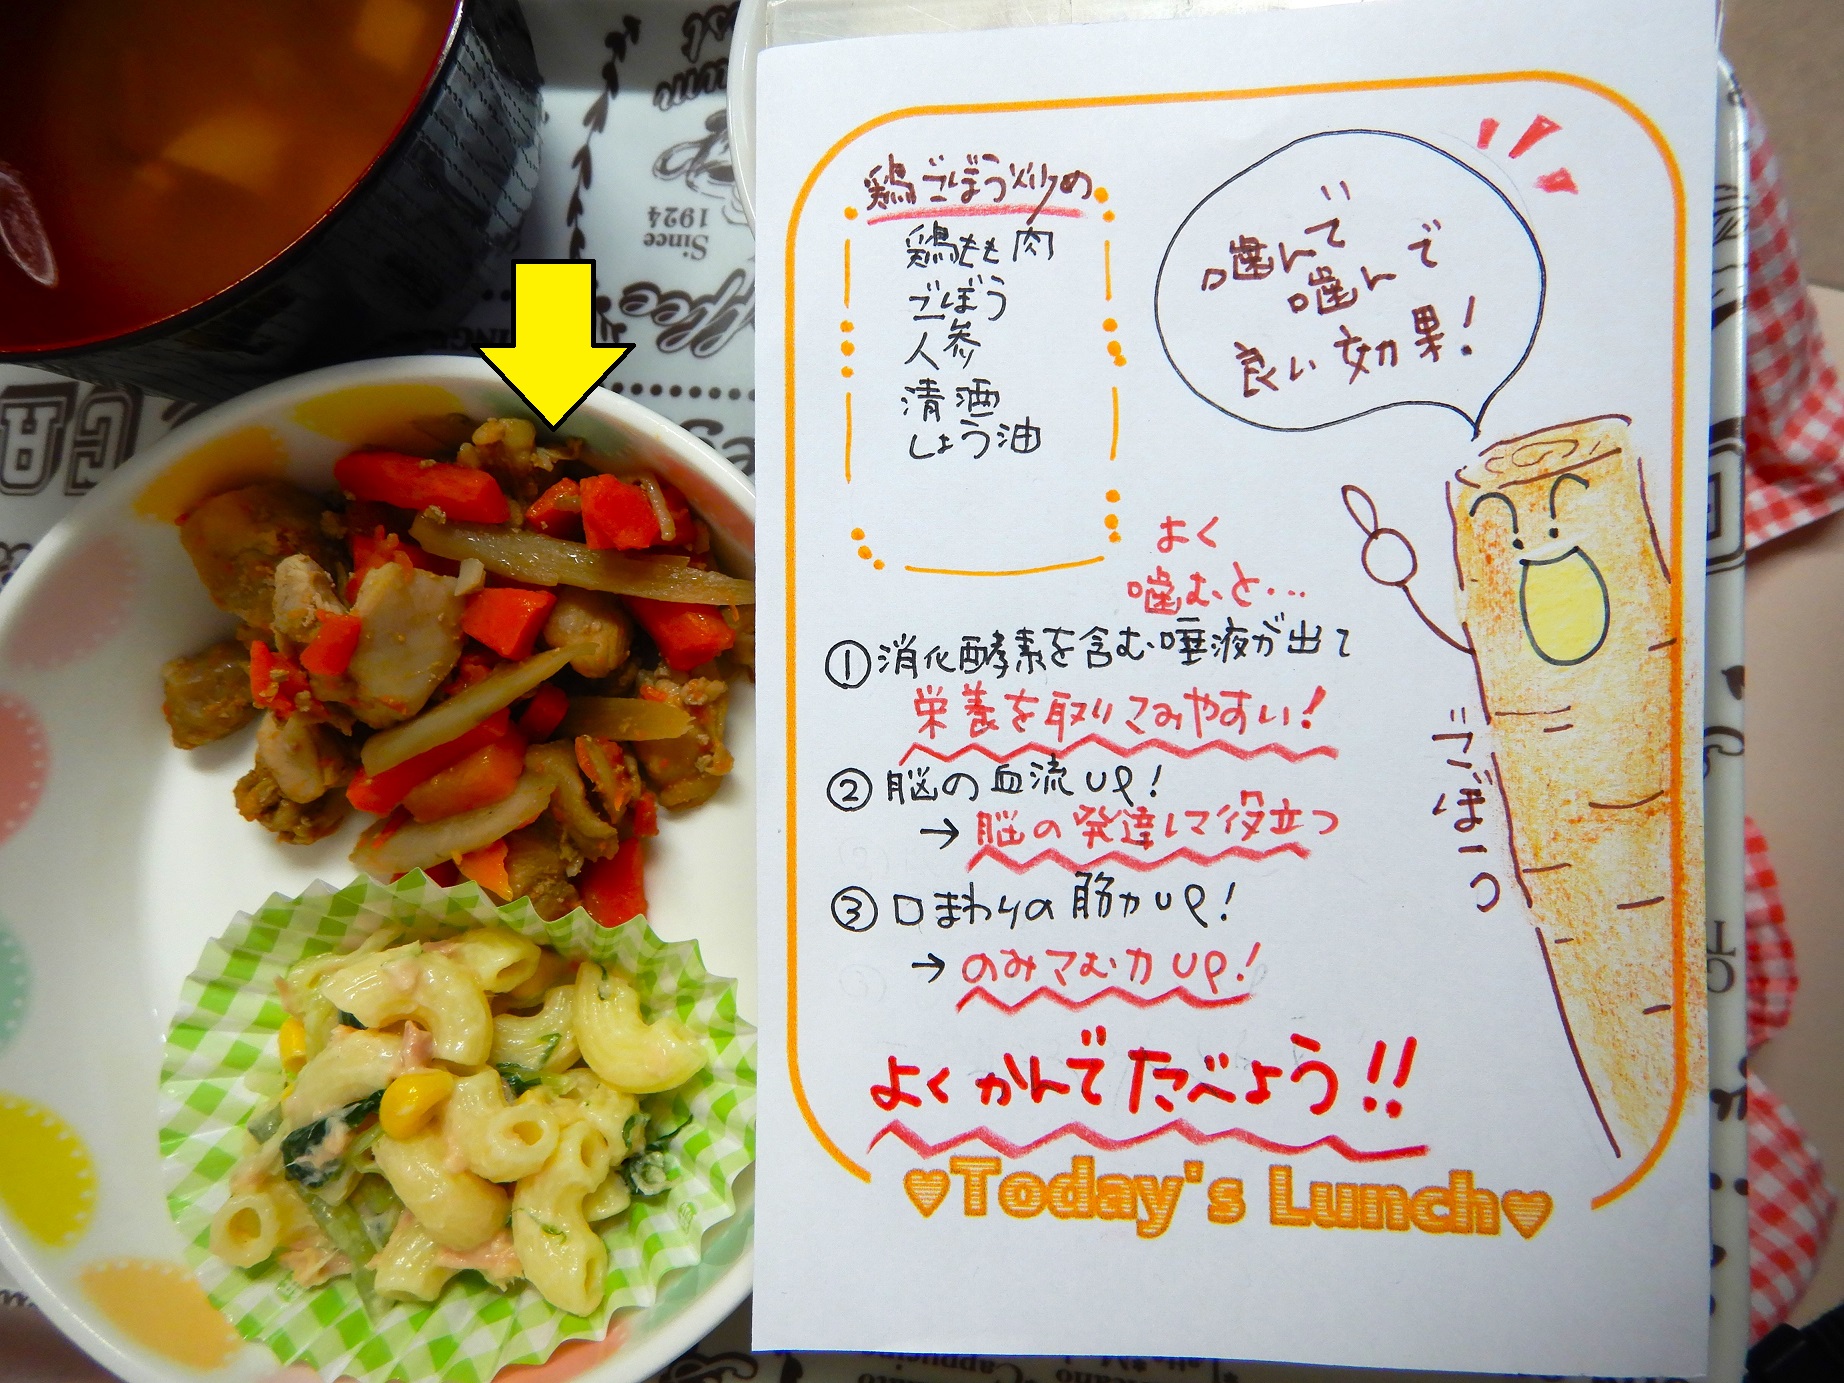 鶏ごぼう炒め
鶏もも肉
ごぼう
人参
清酒
しょう油
噛んで
噛んで
良い効果!
よく
噛むと…
①消化酵素を含む唾液が出て
栄養を取りこみやすい!
②脳の血流UP!
→脳の発達にて役立つ
③口まわりの筋力UP!
→のみこむ力UP!
ごぼーつ
よくかんでたべよう!!
♥Today's Lunch♥
Since
1924